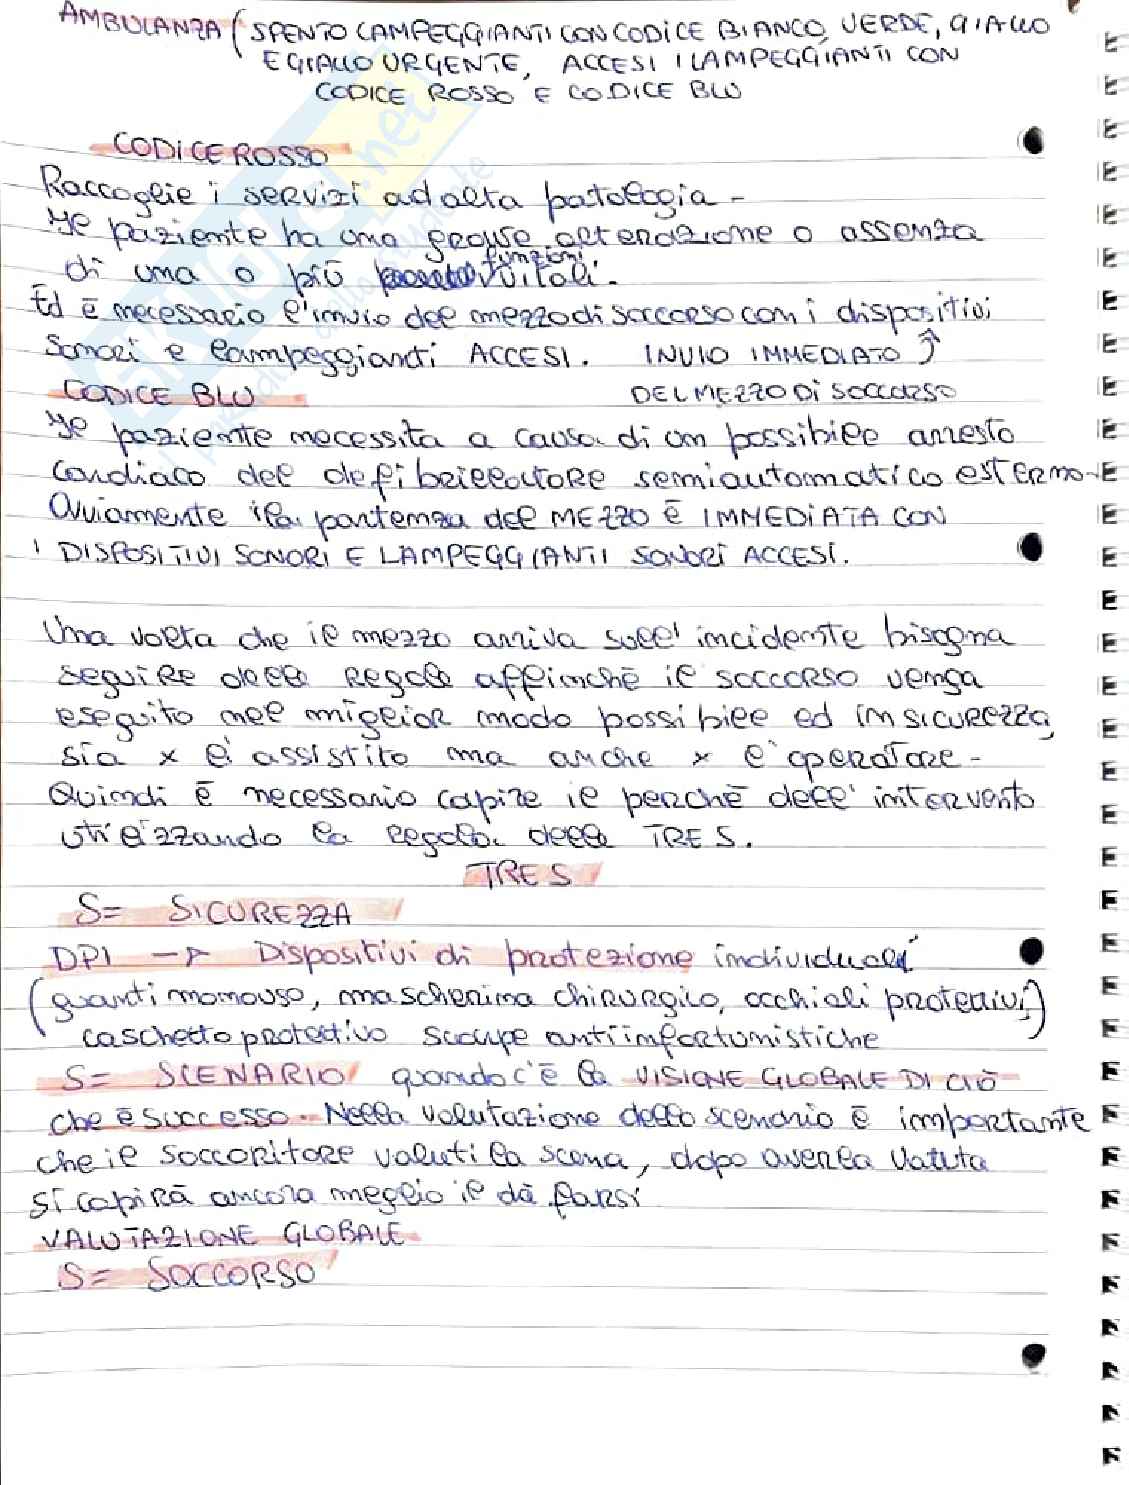 AMBULANZA (SPENTO LAMPEGGIANTI CON CODICE BIANCO, VERDE, GIALLO
E GIALLO URGENTE, ACCESI I LAMPEGGIANTI CON
CODICE ROSSO E CODICE BLU
CODICE ROSSO
Raccoglie i servizi ad alta patologia -
Il paziente ha una grave alterazione o assenza
di una o più funzioni vitali.
Ed è necessario l'invio del mezzo di soccorso con i dispositivi
sonori e lampeggianti ACCESI. INVIO IMMEDIATO ↑
CODICE BLU DEL MEZZO DI SOCCORSO
Il paziente necessita a causa di un possibile arresto
cardiaco del defibrillatore semiautomatico esterno -
Ovviamente la partenza del MEZZO È IMMEDIATA CON
I DISPOSITIVI SONORI E LAMPEGGIANTI SONORI ACCESI.
Una volta che il mezzo arriva sull'incidente bisogna
seguire delle regole affinché il soccorso venga
eseguito nel miglior modo possibile ed in SICUREZZA,
sia x l'assistito ma anche x l'operatore -
Quindi è necessario capire il perché dell'intervento
utilizzando la regola delle TRE S.
TRE S
S= SICUREZZA
DPI → Dispositivi di protezione individuali
(guanti monouso, mascherina chirurgico, occhiali protettivi,)
caschetto protettivo scarpe antiinfortunistiche
S= SCENARIO quando c'è la VISIONE GLOBALE DI CIÒ
che è successo. Nella valutazione dello scenario è importante
che il soccoritore valuti la scena, dopo averla
si capirà ancora meglio il dà farsi
VALUTAZIONE GLOBALE
S= SOCCORSO